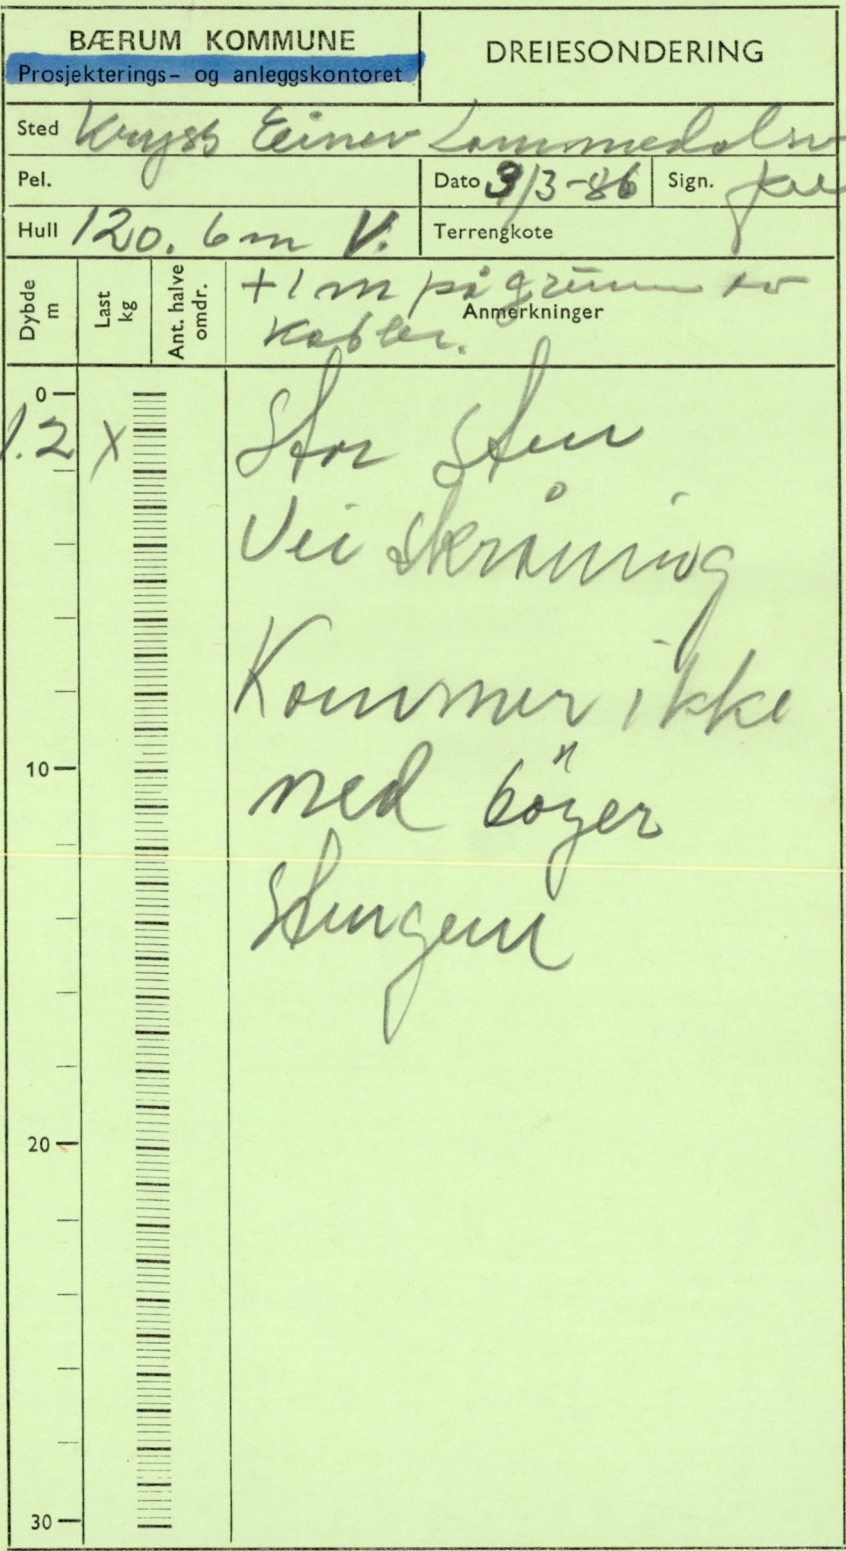 BÆRUM KOMMUNE
Prosjekterings- og anleggskontoret
DREIESONDERING
Sted Kryss Einer Lommedalsv
Pel.
Dato 3/3-86
Sign.
Hull 120. 6m V.
Terrengkote
Dybde m
Last kg
Ant. halve omdr.
+1m på grunn av
Anmerkninger
kabler.
0
1.2 X
Stor sten
Vei skråning
Kommer ikke
10
ned böyer
stengene
20
30